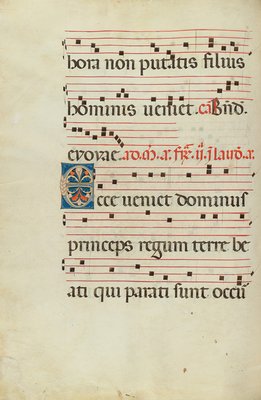 hora non putatis filius
hominis veniet. ca. Bn̄d.
evovae. ad. m̄. a. fr̄e. ij. ī laud. a.
Ecce veniet dominus
princeps regum terre be
ati qui parati sunt occu